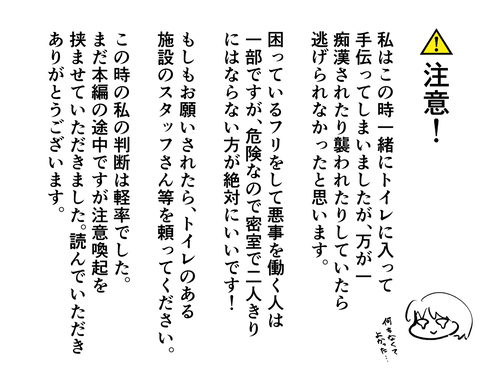 注意！
私はこの時一緒にトイレに入って
手伝ってしまいましたが、万が一
痴漢されたり襲われたりしていたら
逃げられなかったと思います。
困っているフリをして悪事を働く人は
一部ですが、危険なので密室で二人きり
にはならない方が絶対にいいです！
もしもお願いされたら、トイレのある
施設のスタッフさん等を頼ってください。
この時の私の判断は軽率でした。
まだ本編の途中ですが注意喚起を
挟ませていただきました。読んでいただき
ありがとうございます。
何もなくて
よかった…